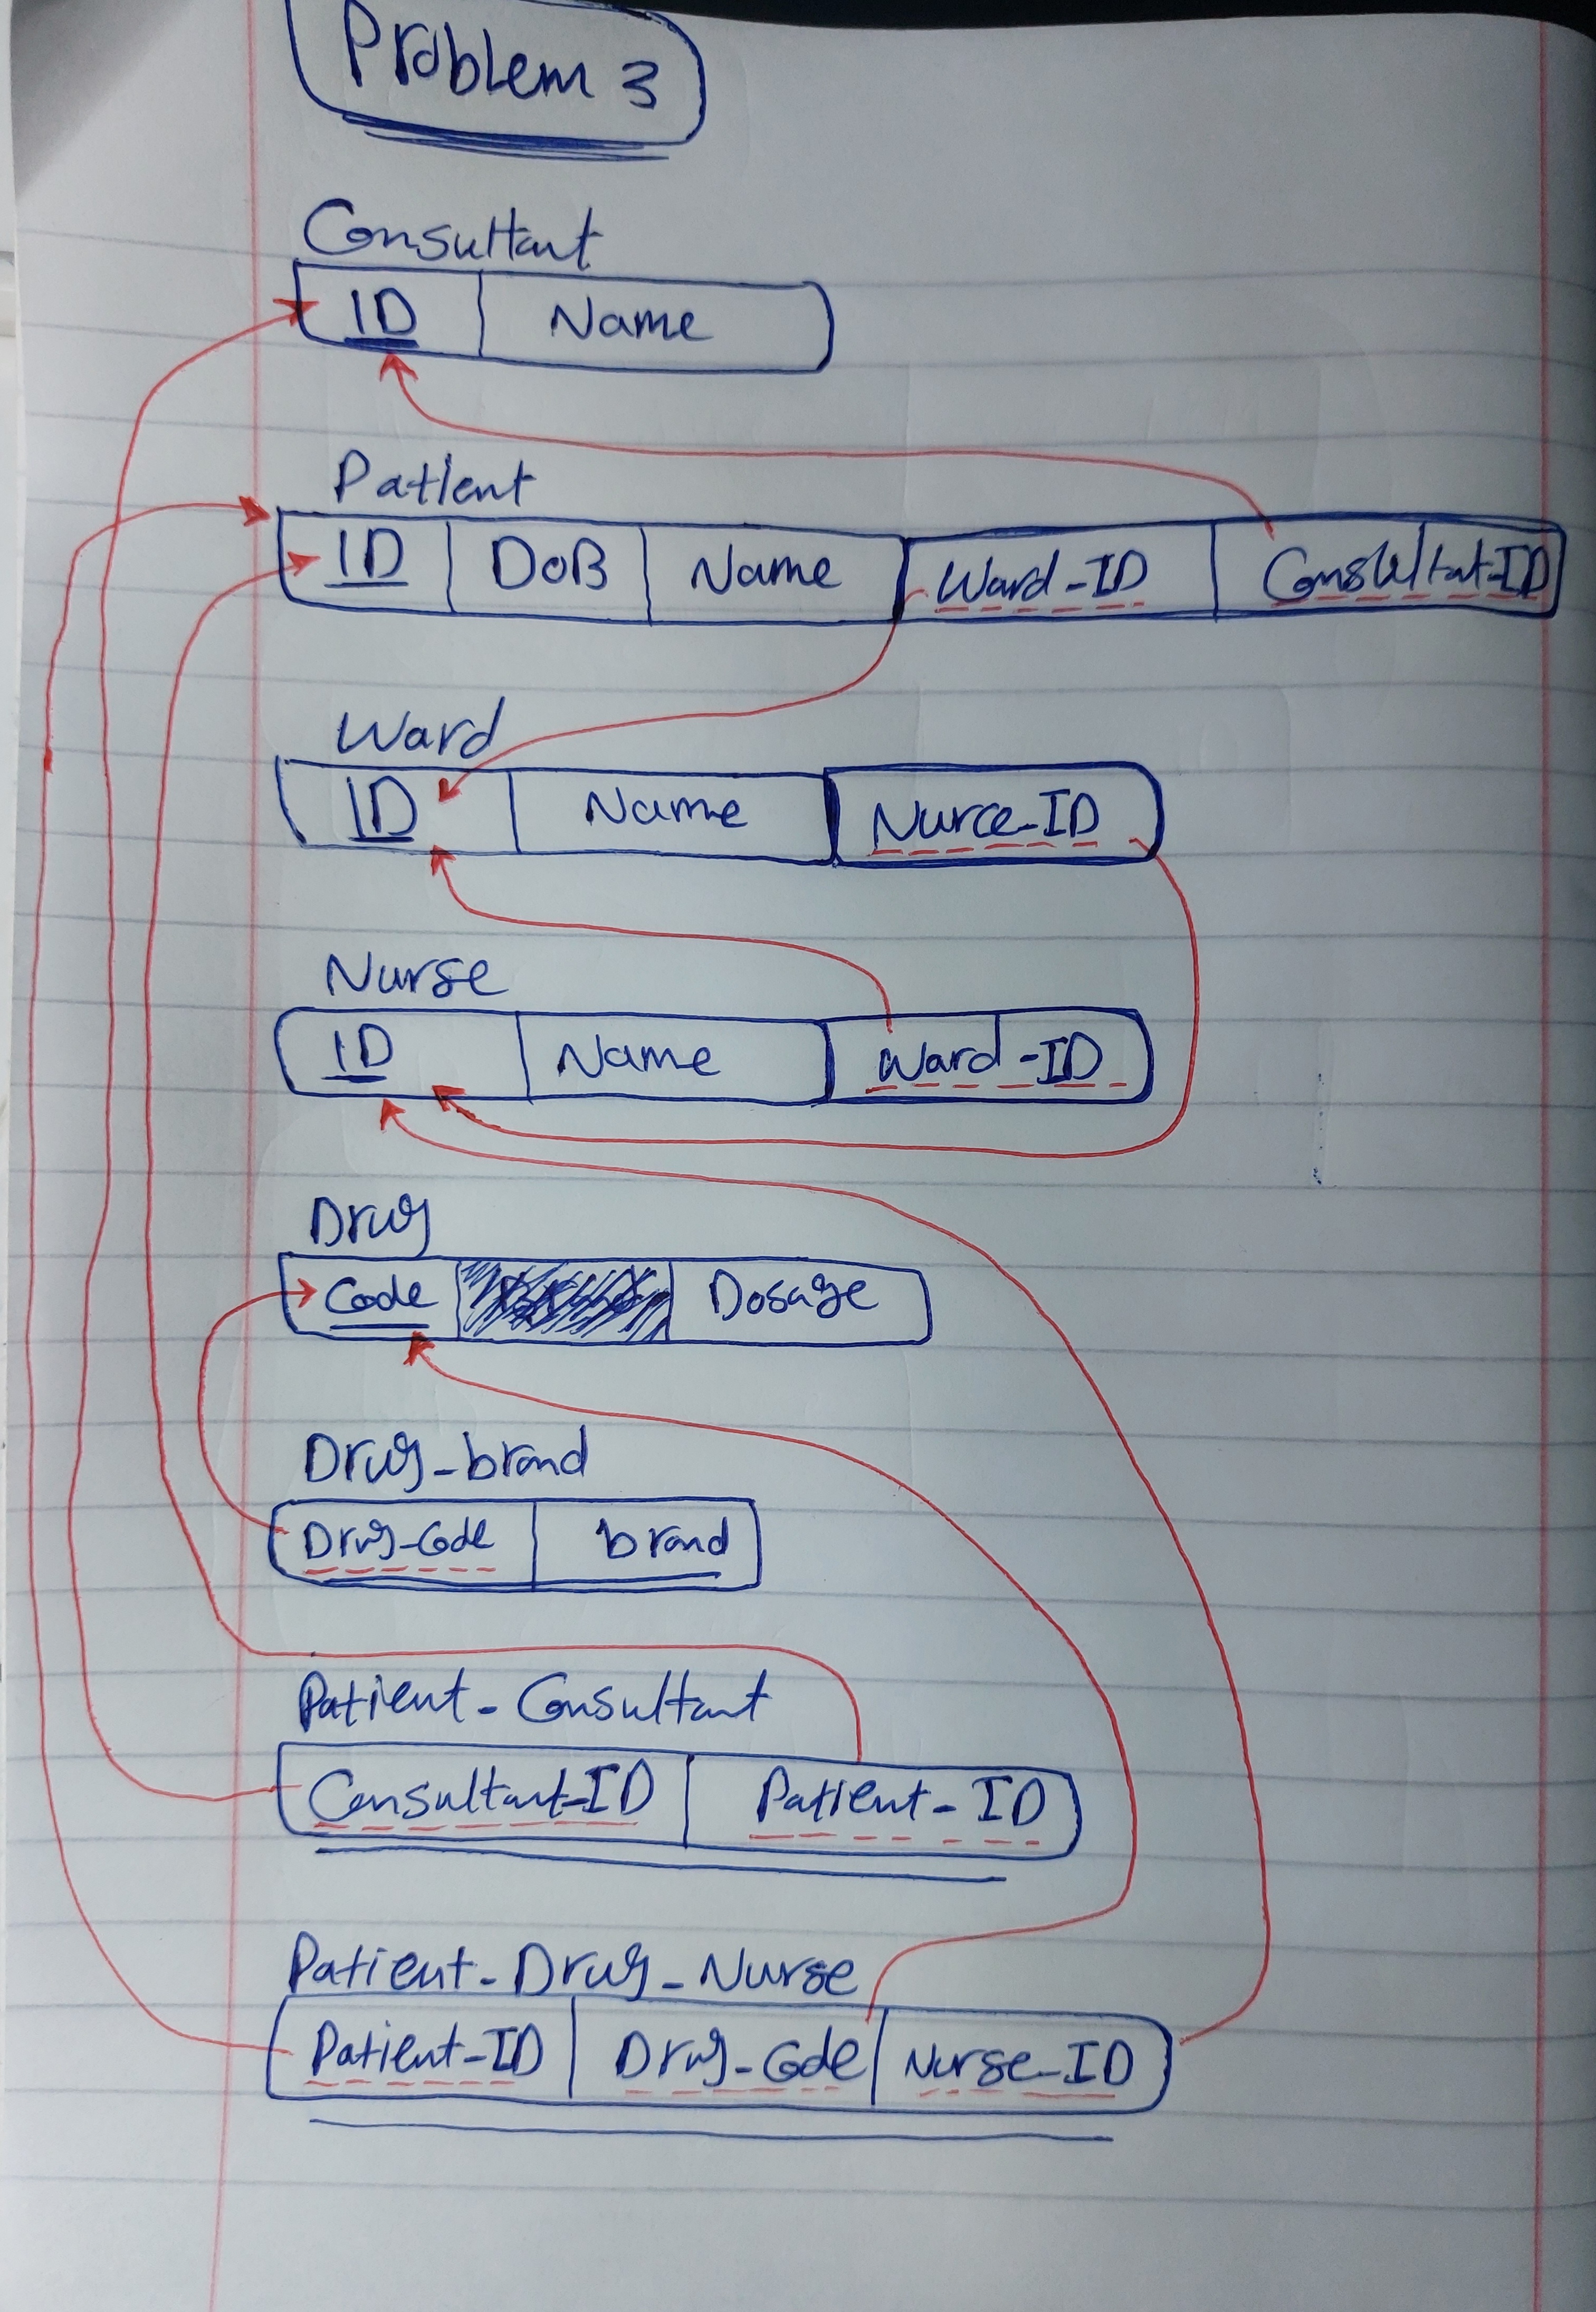 Problem 3
Consultant
ID Name
Patient
ID DoB Name Ward-ID Consultat-ID
Ward
ID Name Nurce-ID
Nurse
ID Name Ward-ID
Drug
Code Dosage
Drug-brand
Drug-Code brand
Patient-Consultant
Consultant-ID Patient-ID
Patient-Drug-Nurse
Patient-ID Drug-Code Nurse-ID